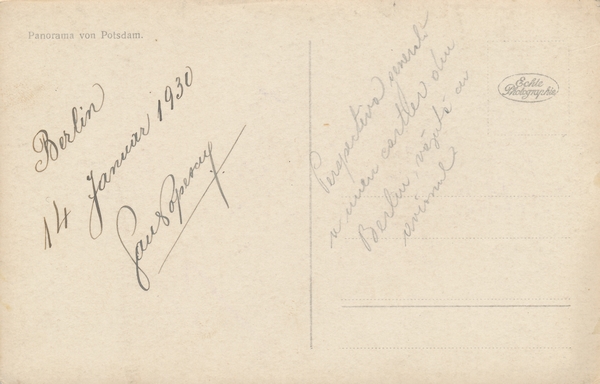 Panorama von Potsdam.
Berlin
14 Januar 1930
Popescu
Echte
Photographie
Perspectiva general
a unui cartier din
Berlin, văzută cu
avionul